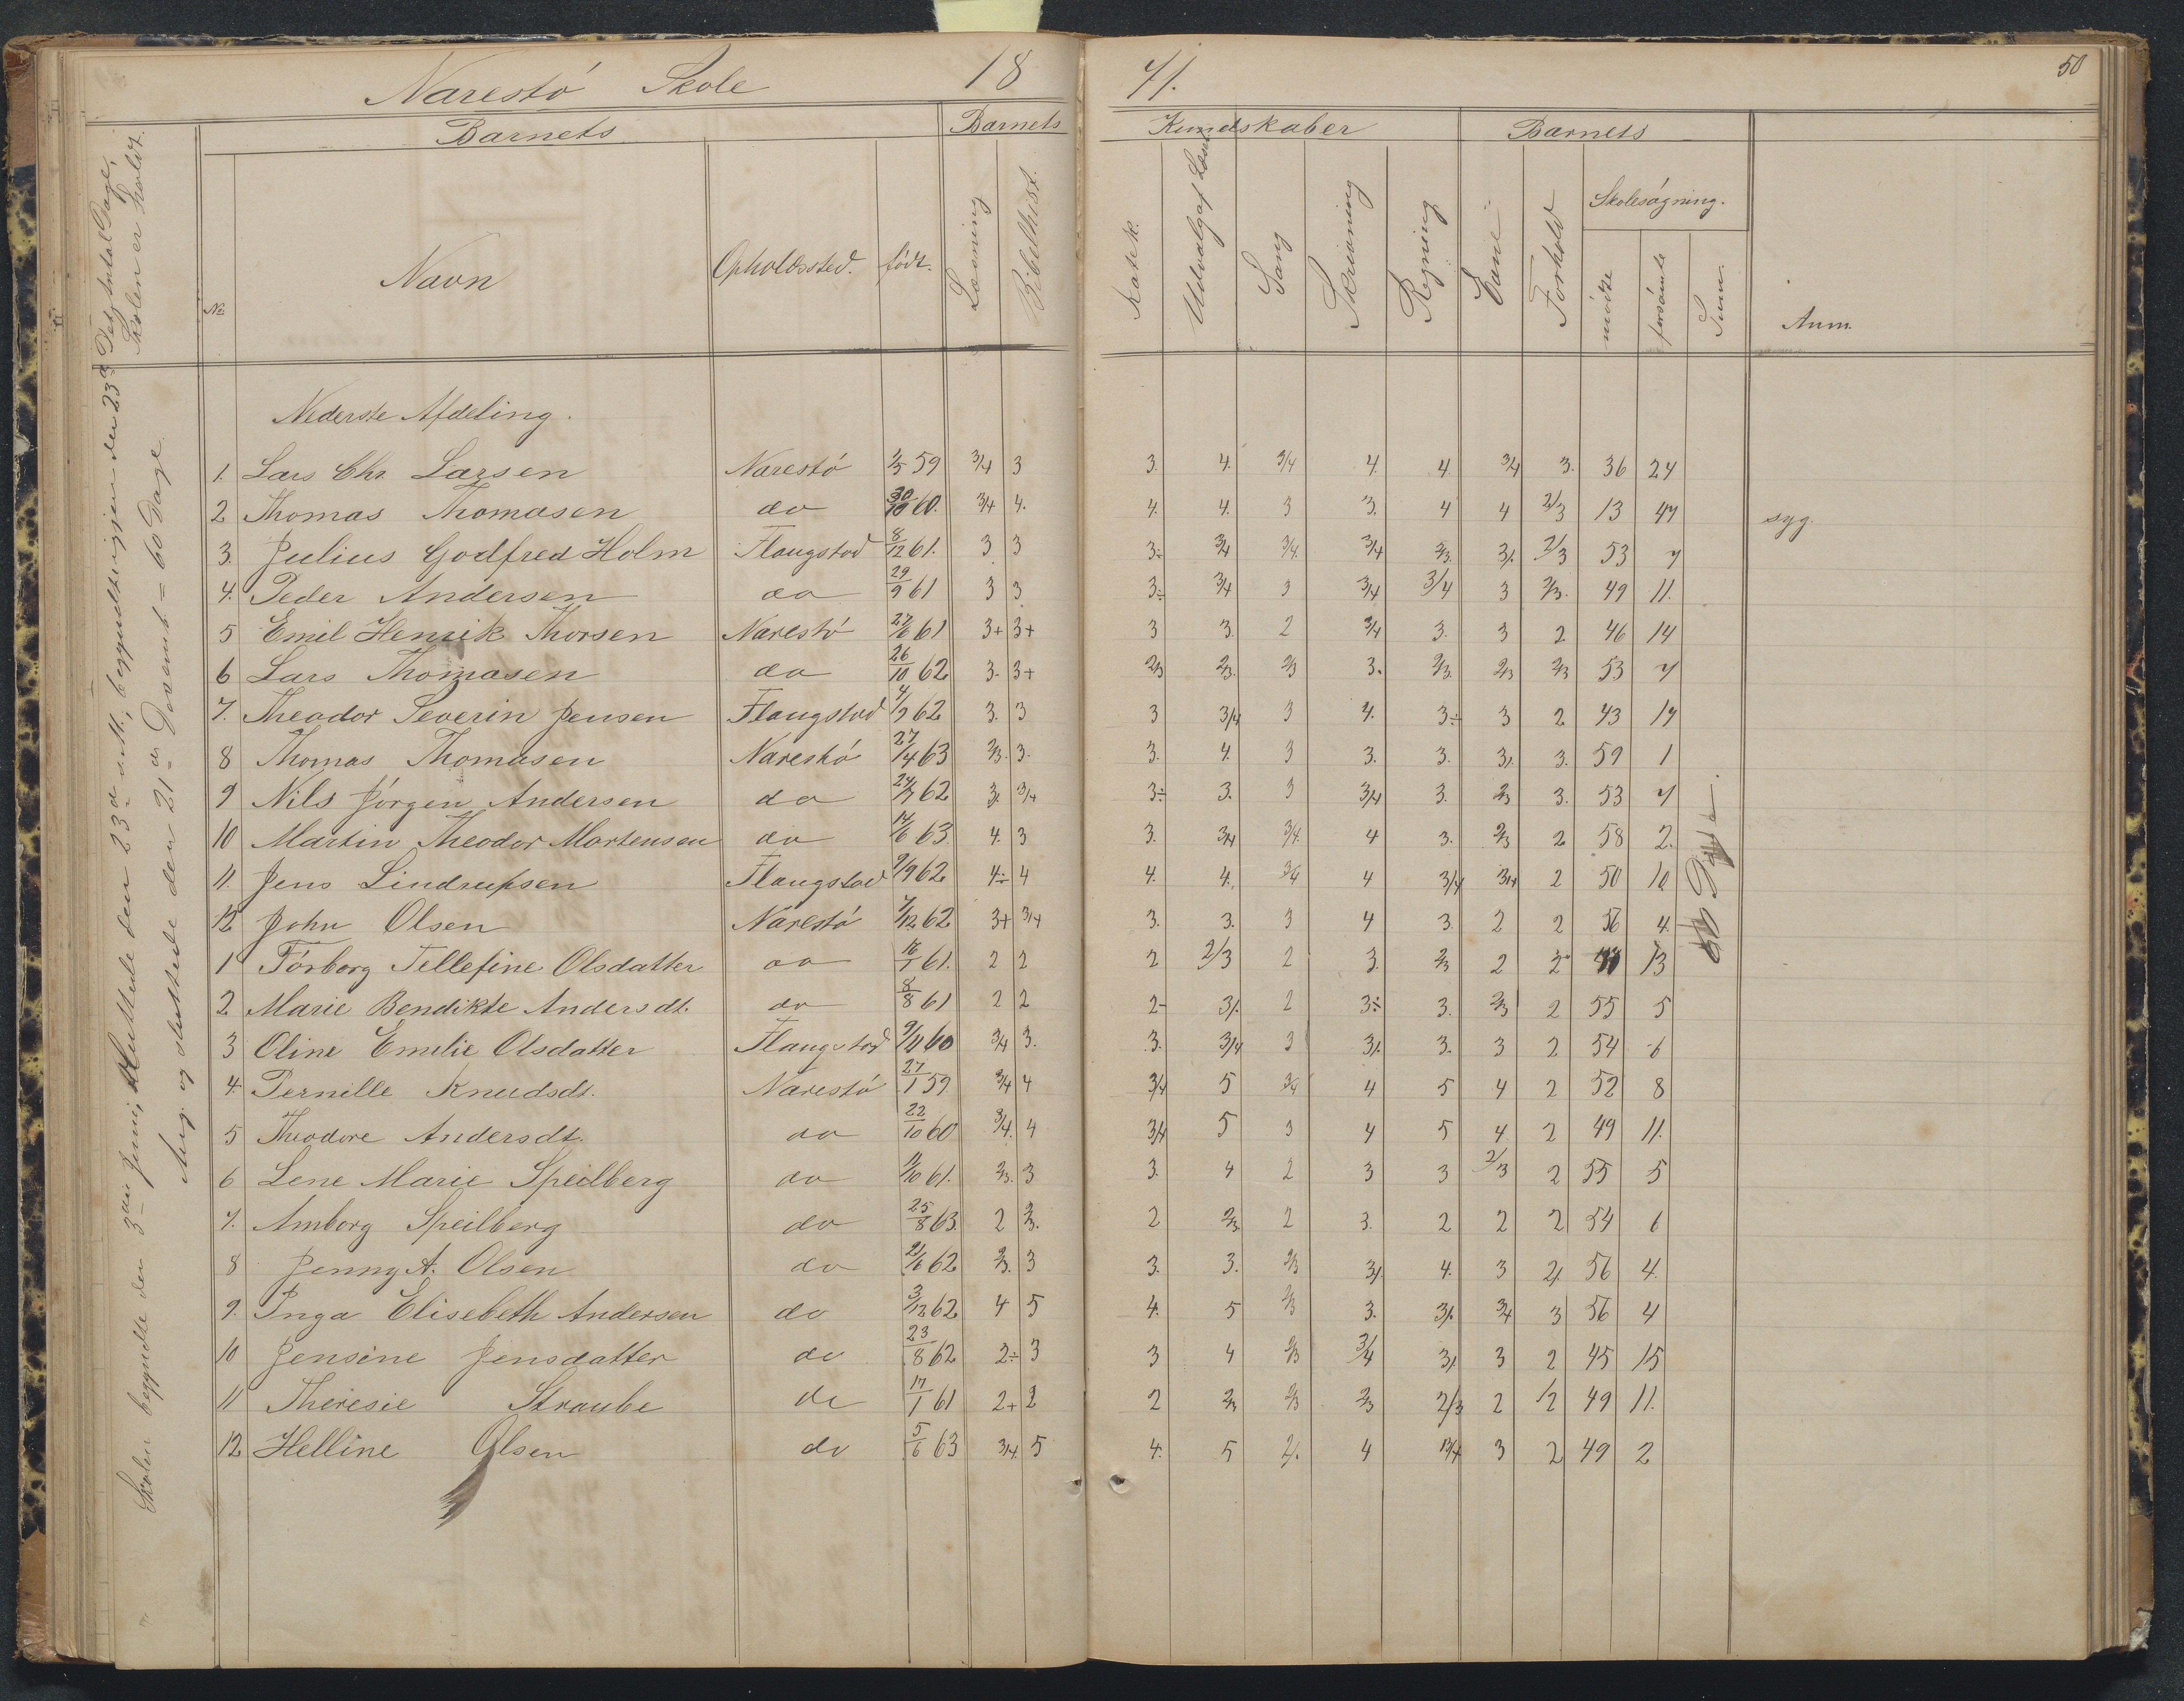 Narestó Skole 18 71. 50
Barnets Barnets Kundskaber Barnets
No Navn Opholdssted. født. Læsning Bibelhist. Katek. Udvalg af Læseb. Sang Skrivning Regning Evne Forhold Skolesøgning. mødte forsømte Sum Anm.
Det hele Antal Dage, Skolen er holdt.
Skolen begyndte den 3die Juni, sluttede den 23de s. M., begyndte igjen den 23de
Aug. og sluttede den 21de Decembr = 60 Dage.
Nederste Afdeling.
1. Lars Chr. Larsen Narestó 59 3/4 3 3. 4. 3/4 4. 4. 3/4 3. 36 24
2 Thomas Thomasen do 30/10 60. 3/4 4. 4. 4. 3 3. 4 4 2/3 13 47 syg.
3. Julius Godfred Holm Flaugstad 8/12 61. 3 3 3÷ 3/4 3/4. 3/4 2/3. 3/. 2/3 53 7
4. Peder Andersen do 29/9 61 3 3 3÷ 3/4 3 3/4 3/4 3 2/3. 49 11.
5 Emil Henrik Thorsen Narestó 27/6 61 3+ 3+ 3 3. 2 3/4 3. 3 2 46 14
6 Lars Thomasen do 26/10 62 3. 3+ 2/3 2/3. 2/3 3. 2/3. 2/3 2/3 53 7
7. Theodor Severin Jensen Flaugstad 4/9 62 3. 3 3 3/4 3 4. 3÷ 3 2 43 17
8 Thomas Thomasen Narestó 27/4 63 2/3. 3. 3. 4. 3 3. 3. 3/. 3. 59 1
9 Nils Jórgen Andersen do 24/7 62 3. 3/4 3÷ 3. 3 3/4 3. 2/3 3. 53 7
10 Martin Theodor Mortensen do 17/6 63 4. 3 3. 3/4 3/4. 4 3. 2/3 2 58 2.
11. Jens Lindrupsen Flaugstad 9/9 62 4÷ 4 4. 4. 3/4 4 3/4 3/4 2 50 10
12 John Olsen Narestó 7/12 62 3+ 3/4 3. 3. 3 4 3. 2 2 56 4.
60 Dage
1 Tórborg Tellefine Olsdatter do 16/1 61. 2 2 2 2/3 2 3. 2/3 2 2 47 13
2 Marie Bendikte Andersdt. do 8/8 61 2 2 2- 3/. 2 3÷ 3. 2/3 2 55 5
3 Oline Emilie Olsdatter Flaugstad 9/11 60 3/4 3. 3. 3/4 3 3/. 3. 3 2 54 6
4. Pernille Knudsdt. Narestó 27/1 59 3/4 4 3/4 5 3/4 4 5 4 2 52 8
5 Theodore Andersdt. do 22/10 60 3/4. 4 3/4 5 3 4 5 4 2 49 11.
6 Lene Marie Speilberg do 11/10 61. 2/3. 3 3. 4 2 3 3 2/3 2 55 5
7. Amborg Speilberg do 25/8 63 2 2/3. 2 2/3 2 3. 2 2 2 54 6
8 Jenny A. Olsen do 21/6 62 2/3. 3 3. 3. 2/3 3/. 4. 3 2/. 56 4.
9. Inga Elisebeth Andersen do 3/12 62 4 5 4. 5 2/3 3. 3/. 3/4 3 56 4
10 Jensine Jensdatter do 23/8 62 2÷ 3 3 4 2/3 3/4 3/. 3 2 45 15
11 Theresie Straube do 17/1 61 2+ 2 2 2/3 2/3 2/3 2/3 2 1/2 49 11.
12 Helline Olsen do 5/6 63 3/4. 5 4. 5 2/. 4 3/4 3 2 49 2